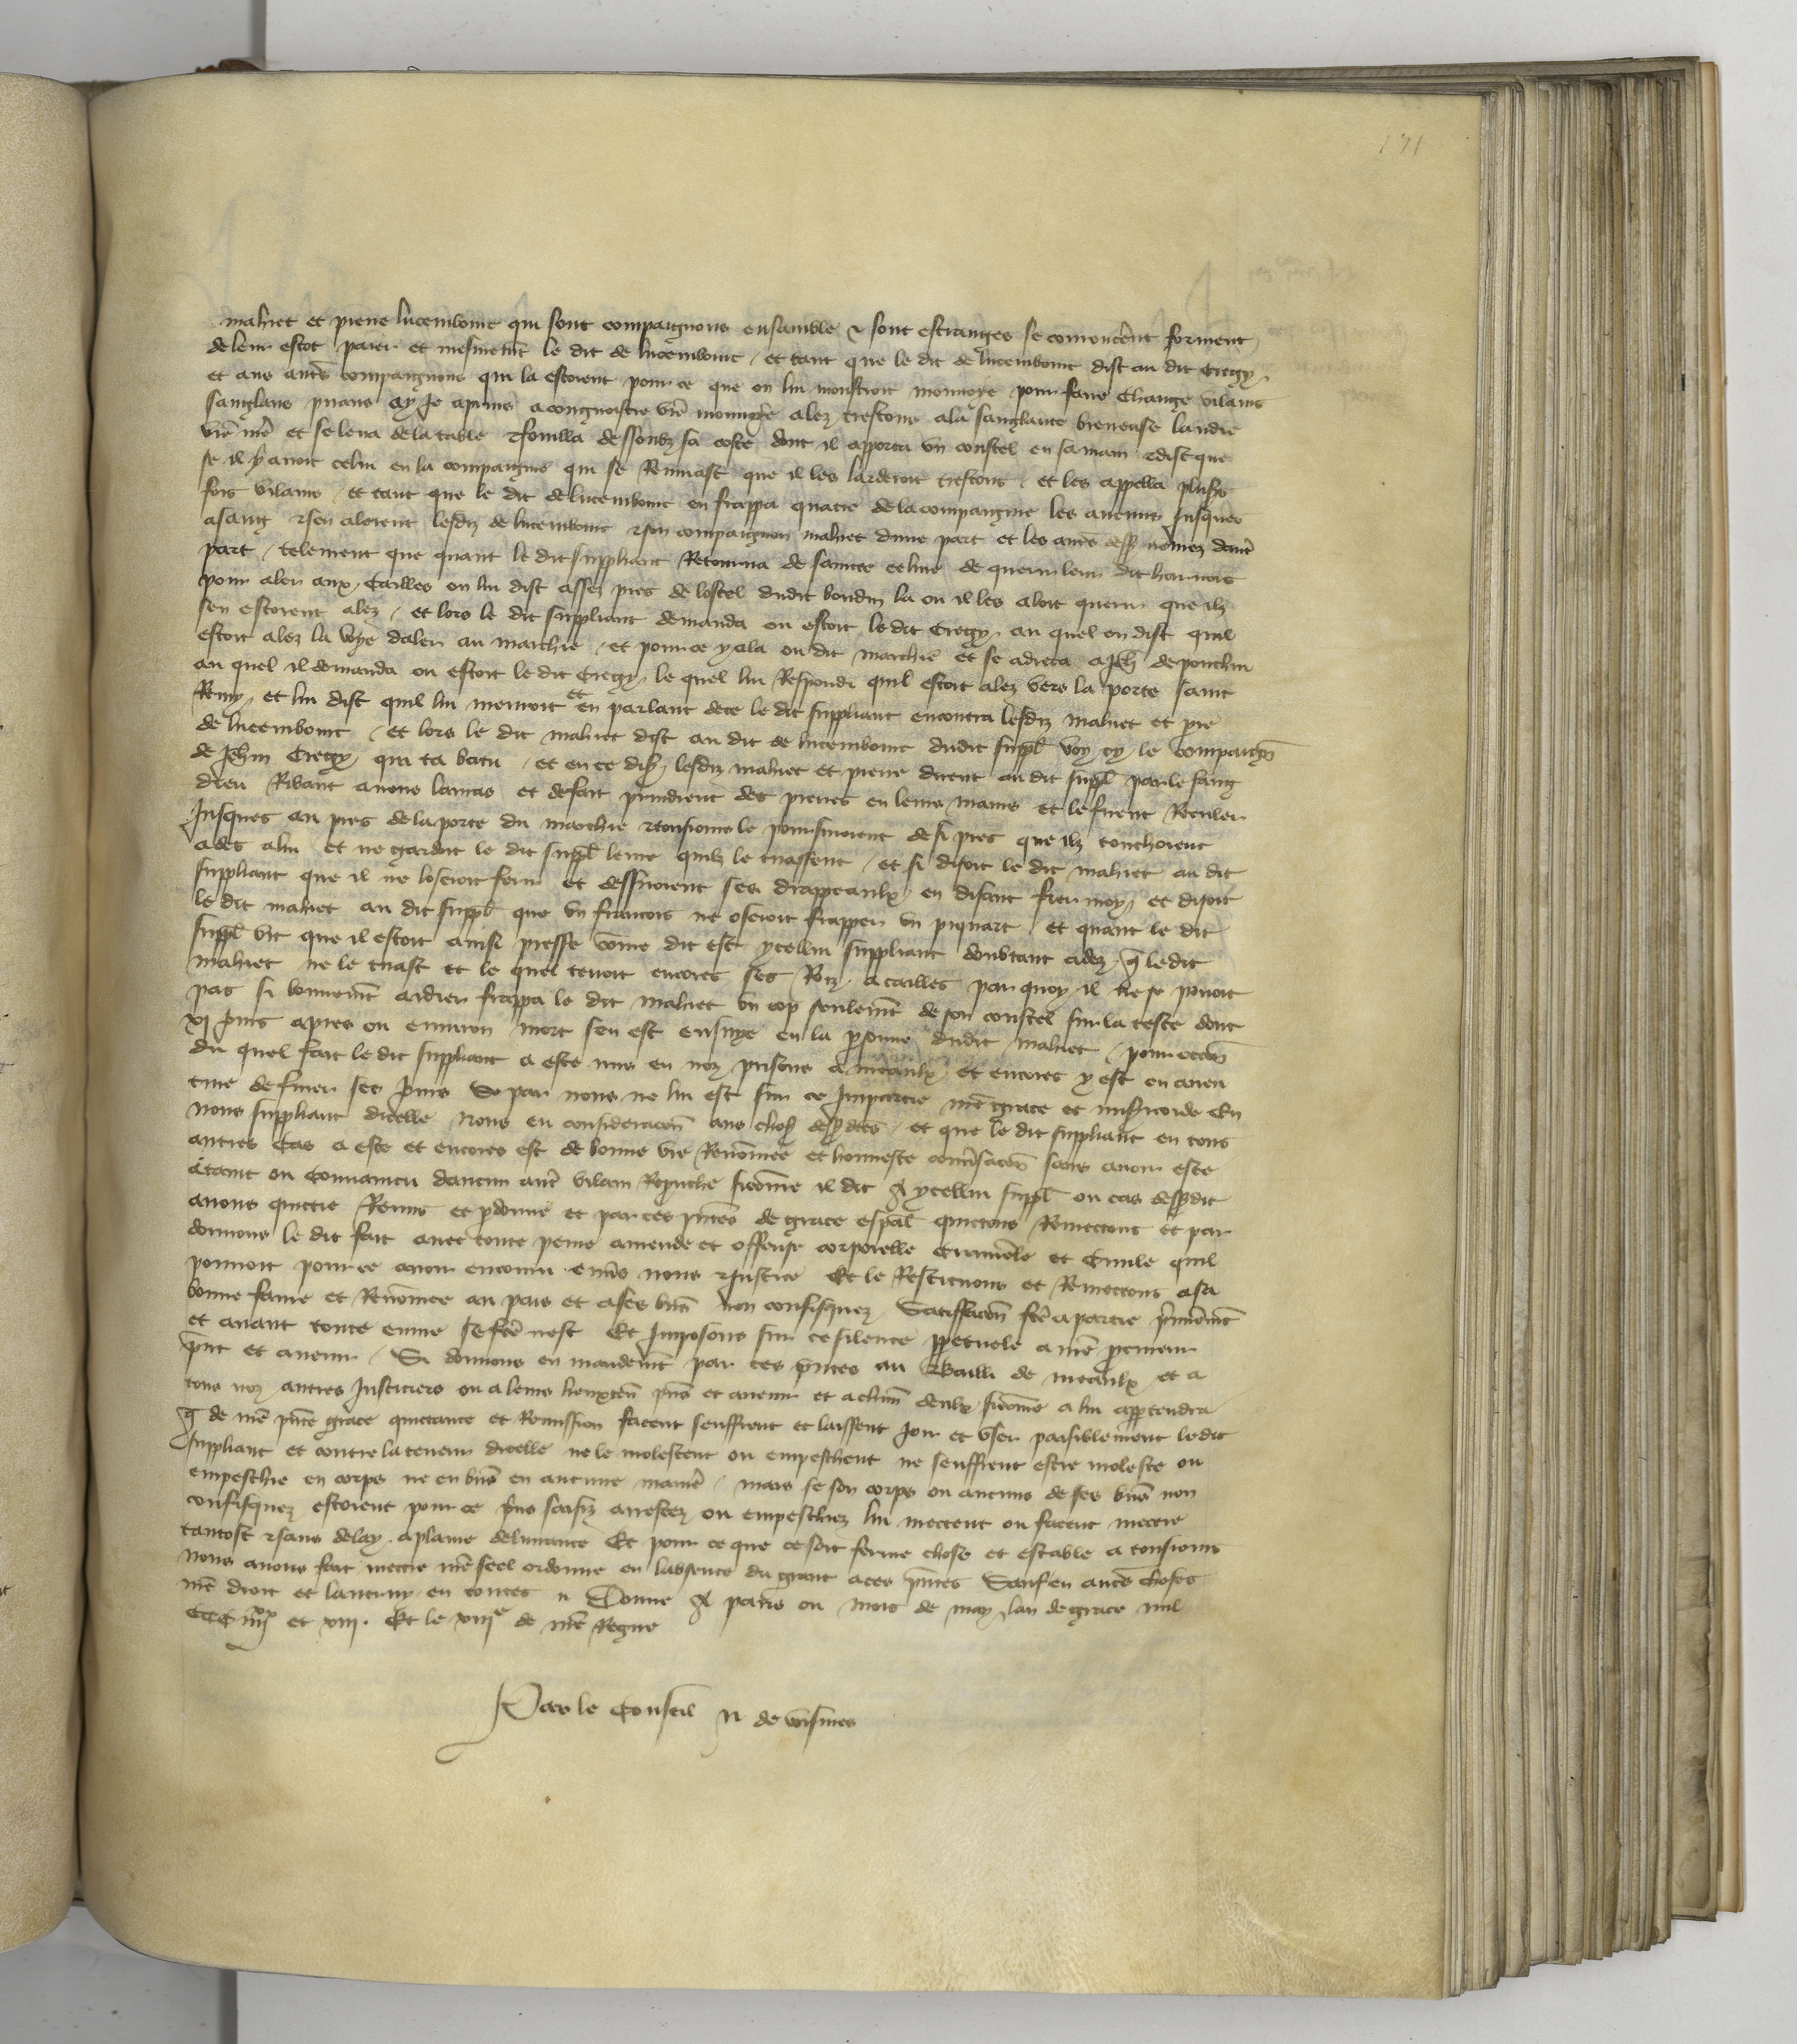 171
malnet et pierre lucembourc qui sont compaignons ensamble & sont estranges se comencerent forment
de leur escot paier et mesmemt le dit de lucembourc / et tant que le dit de lucembourc dist au dit Cregy
et aus autres compaignons qui la estoient pour ce que on lui monstroit monnoye pour faire change vilains
sanglans puans ay Je apris a congnoistre vre monnoye alez trestous a la sanglante breneuse landie
vre mere et se leva de la table & fouilla dessoubz sa coste dont il apporta un coustel en sa main & dist que
se il y avoit celui en la compaignie qui se Remuast que il les larderoit trestous / et les appella plus
fois vilains / et tant que le dit de lucembourc en frappa quatre de la compaignie les aucuns Jusques
a sang & sen alerent lesdiz de lucembourc & son compaignon malnet dune part et les autres dess nomez dautre
part / telement que quant le dit suppliant Retourna de saincte celine de querir leur dit harnois
pour aler aux Cailles on lui dist assez pres de lostel dudit boudin la ou il les aloit querir que ilz
sen estoient alez / et lors le dit suppliant demanda ou estoit le dit Cregy au quel on dist quil
estoit alez la voye daler au marchie / et pour ce y ala ou dit marchie et se adreca a Jeh de ponchin
au quel il demanda ou estoit le dit Cregy le quel lui Respondi quil estoit alez vers la porte saint
Remy et lui dist quil lui menroit et en parlant de ce le dit suppliant encontra lesdiz malnet et pre
de lucembourc / et lors le dit malnet dist au dit de lucembourc dudit suppl voy cy le compaign
de Jehin Cregy qui ta batu / et en ce dis lesdiz malnet et pierre dirent au dit suppl par le sang
dieu Ribaut a nous lauras et de fait prindrent des pierres en leurs mains et le firent Reculer
Jusques au pres de la porte du marchie & tousiours le poursuivoient de si pres que ilz touchoient
ades a lui et ne gardoit le dit suppl leure quilz le tuassent / et si disoit le dit malnet au dit
suppliant que il ne loseroit ferir et dessiroient ses drappeaulx en disant fier moy et disoit
le dit malnet au dit suppl que un francois ne oseroit frapper un piquart / et quant le dit
suppl vit que il estoit ainsi presse come dit est ycellui suppliant doubtant adez q ledit
malnet ne le tuast et le quel tenoit encores ses Roiz a cailles par quoy il ne se povoit
pas si bonnemt aidier frappa le dit malnet un cop seulemt de son coustel sur la teste dont
xj jours apres ou environ mort sen est ensuye en la psonne dudit malnet / pour occon
du quel fait le dit suppliant a este mis en noz prisons a meaulx et encores y est en aven
ture de finer ses jours Se par nous ne lui est sur ce Impartie nre grace et misicorde En
nous suppliant dicelle Nous en consideracon aus chos dessdtes / et que le dit suppliant en tous
autres Cas a este et encores est de bonne vie Renomee et honneste convsacon sans avoir este
ataint ou convaincu daucun autre vilain Reprouche sicome il dit A ycellui suppl ou cas dessdit
avons quictie Remis et pdonne et par ces pntes de grace espal quictons Remettons et par
donnons le dit fait avec toute peine amende et offense corporelle Criminele et Civile quil
pourroit pour ce avoir encouru envs nous & Justice Et le Restituons et Remettons a sa
bonne fame et Renomee au pais et a ses biens non confisquez Satisfacon fte a partie premieremt
et avant toute euvre se fte nest Et Imposons sur ce silence ppetuele a nre pcureur
pnt et avenir / Si donnons en mandemt par ces pntes au Bailli de meaulx et a
tous noz autres Justiciers ou a leurs lieuxten pns et avenir et a chun deulx sicome a lui apptendra
q de nre pnte grace quictance et Remission facent seuffrent et laissent Joir et user paisiblement ledit
suppliant et contre la teneur dicelle ne le molestent ou empeschent ne seuffrent estre moleste ou
empeschie en corps ne en biens en aucune maniere / mais se son corps ou aucuns de ses biens non
confisquez estoient pour ce pris saisiz arrestez ou empeschiez lui mectent ou facent mectre
tantost & sans delay a plaine delivrance Et pour ce que ce soit ferme chose et estable a tousiours
nous avons fait mectre nre seel ordonne en labsence du grant a ces pntes Sauf en autres choses
nre droit et lautruy en toutes Donne A paris ou mois de may lan de grace mil
CCC iiijxx et xiii. Et le xiiie de nre Regne
Par le Conseil N de voisines